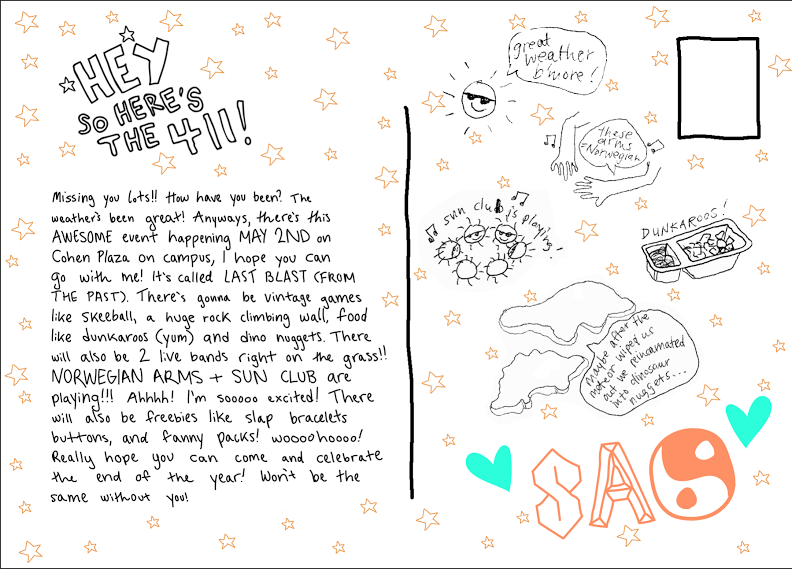 HEY
SO HERE'S
THE 411!
Missing you lots!! How have you been? The
weather's been great! Anyways, there's this
AWESOME event happening MAY 2ND on
Cohen Plaza on campus, I hope you can
go with me! It's called LAST BLAST (FROM
THE PAST). There's gonna be vintage games
like skeeball, a huge rock climbing wall, food
like dunkaroos (yum) and dino nuggets. There
will also be 2 live bands right on the grass!!
NORWEGIAN ARMS + SUN CLUB are
playing!!! Ahhhh! I'm sooooo excited! There
will also be freebies like slap bracelets
buttons, and fanny packs! wooooohoooo!
Really hope you can come and celebrate
the end of the year! Won't be the
same without you!
great
weather
b'more!
these
arms
=Norwegian
sun club is playing...
DUNKAROOS!
Maybe after the
meteor wiped us
out we reincarnated
into dinosaur
nuggets...
SAO